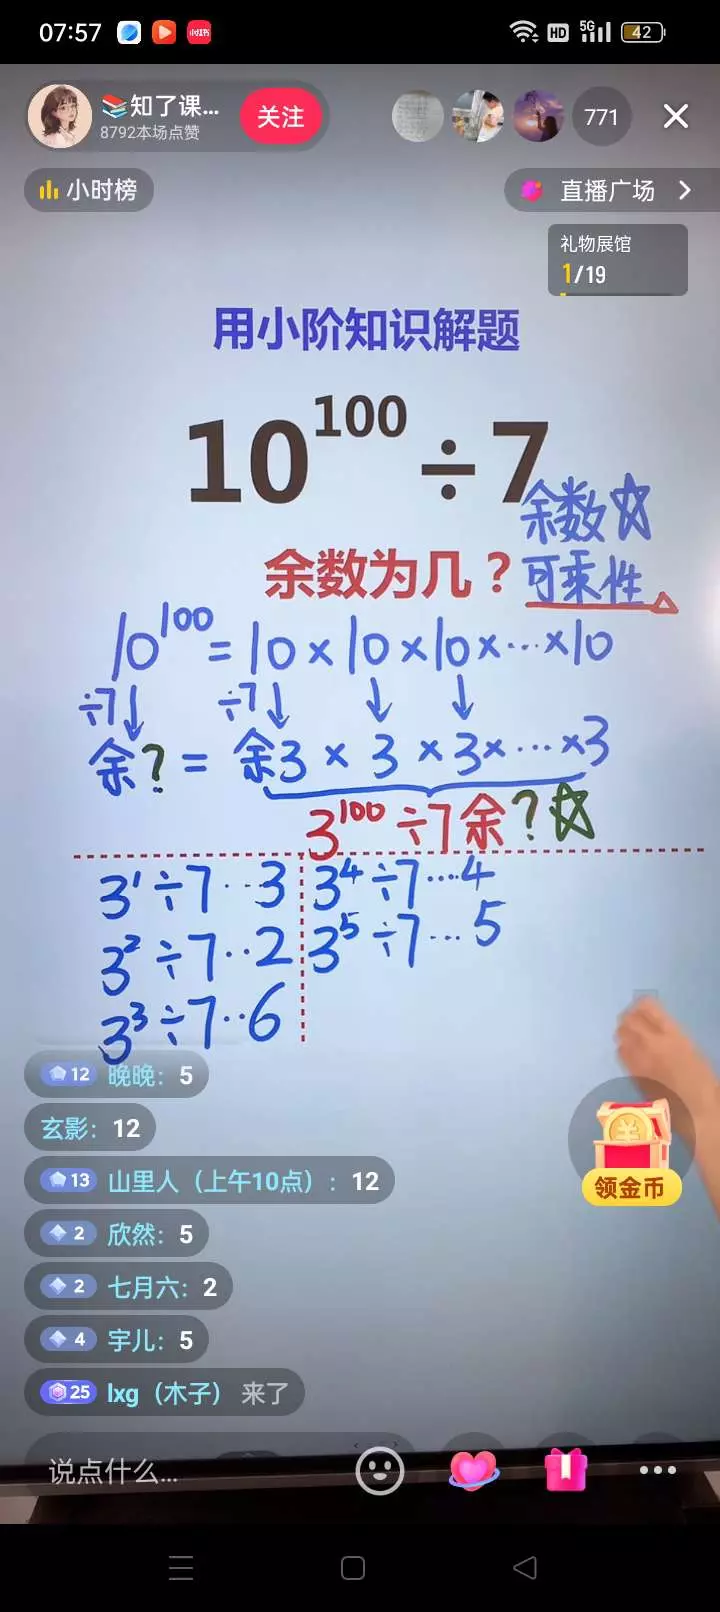 07:57
HD
5G
42
知了课...
8792本场点赞
关注
771
小时榜
直播广场
礼物展馆
1/19
用小阶知识解题
10^100÷7
余数☆
余数为几？
可乘性
10^100=10×10×10×...×10
÷7↓ ÷7↓ ↓ ↓
余?=余3×3×3×...×3
3^100÷7余?☆
3^1÷7...3
3^4÷7...4
3^2÷7..2
3^5÷7...5
3^3÷7..6
12 晚晚：5
玄影：12
13 山里人（上午10点）：12
2 欣然：5
2 七月六：2
4 宇儿：5
25 lxg（木子） 来了
领金币
说点什么...